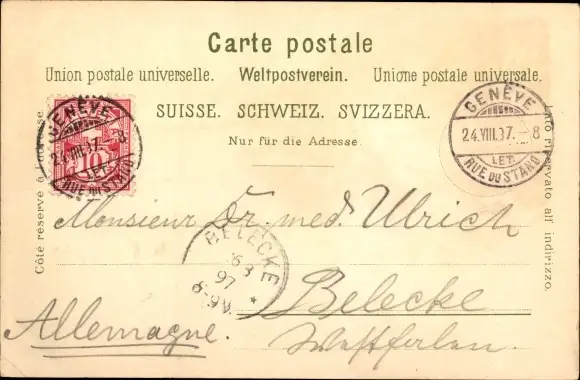 Carte postale
Union postale universelle. Weltpostverein. Unione postale universale.
SUISSE. SCHWEIZ. SVIZZERA.
Nur für die Adresse.
Côté réservé à l'adresse.
Lato riservato all' indirizzo.
GENÈVE
24.VIII.97.-8
LET.
RUE DU STAND
10
GENÈVE
24.VIII.97.-8
LET.
RUE DU STAND
Monsieur Dr. med. Ulrich
BELECKE
97
8-9V.
*
Belecke
Westfalen.
Allemagne.